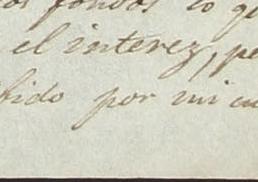 os fondos lo q
el interez, pe
bido por mi cu